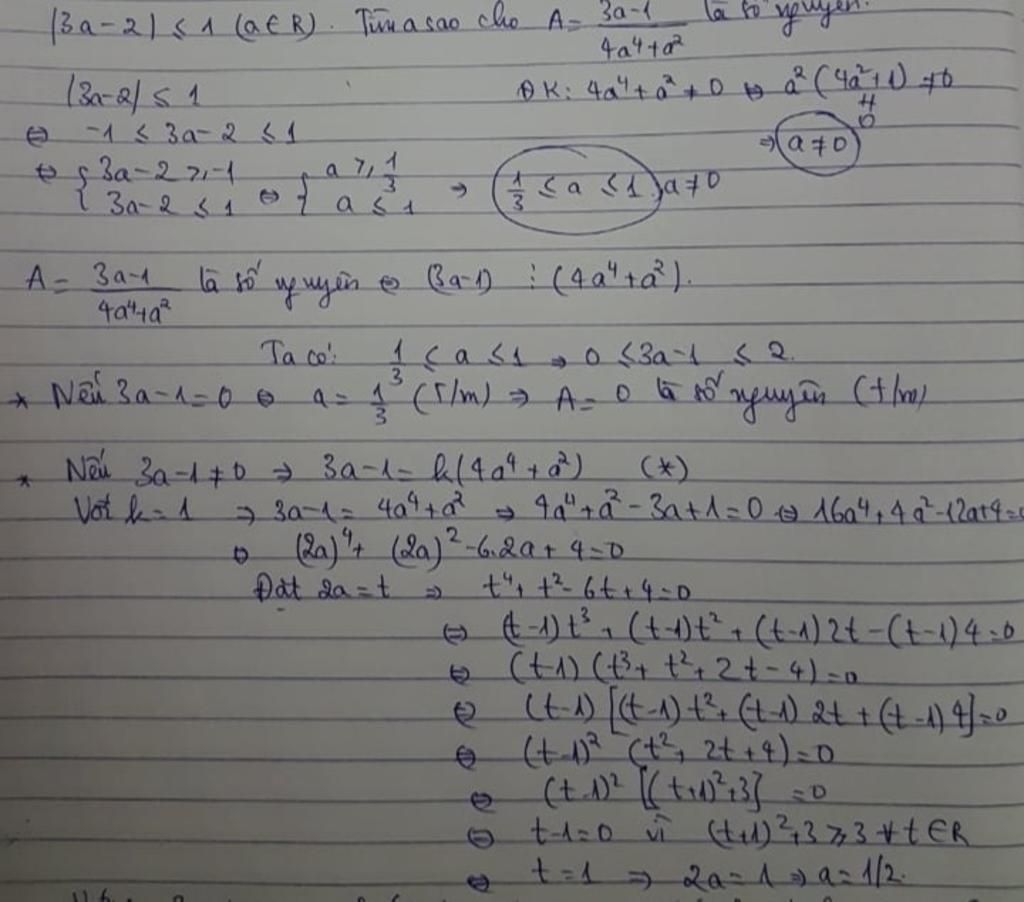 |3a-2| ≤ 1 (a∈R). Tìm a sao cho A = (3a-1)/(4a⁴+a²) là số nguyên.
|3a-2| ≤ 1 ĐK: 4a⁴+a² ≠ 0 ⇔ a²(4a²+1) ≠ 0
≠ 0
⇔ -1 ≤ 3a-2 ≤ 1 ⇒ a ≠ 0
⇔ { 3a-2 ≥ -1 ; 3a-2 ≤ 1 ⇔ { a ≥ 1/3 ; a ≤ 1 ⇒ 1/3 ≤ a ≤ 1, a ≠ 0
A = (3a-1)/(4a⁴+a²) là số nguyên ⇔ (3a-1) ⋮ (4a⁴+a²).
Ta có: 1/3 ≤ a ≤ 1 ⇒ 0 ≤ 3a-1 ≤ 2.
* Nếu 3a-1=0 ⇔ a = 1/3 (T/m) ⇒ A = 0 là số nguyên (t/m)
* Nếu 3a-1≠0 ⇒ 3a-1 = k(4a⁴+a²) (*)
Với k=1 ⇒ 3a-1 = 4a⁴+a² ⇒ 4a⁴+a²-3a+1=0 ⇔ 16a⁴+4a²-12a+4=0
⇔ (2a)⁴+(2a)²-6.2a+4=0
Đặt 2a=t ⇒ t⁴+t²-6t+4=0
⇔ (t-1)t³+(t-1)t²+(t-1)2t-(t-1)4=0
⇔ (t-1)(t³+t²+2t-4)=0
⇔ (t-1)[(t-1)t²+(t-1)2t+(t-1)4]=0
⇔ (t-1)²(t²+2t+4)=0
⇔ (t-1)²[(t+1)²+3]=0
⇔ t-1=0 vì (t+1)²+3 ≥ 3 ∀t∈R
⇔ t=1 ⇒ 2a=1 ⇒ a=1/2.